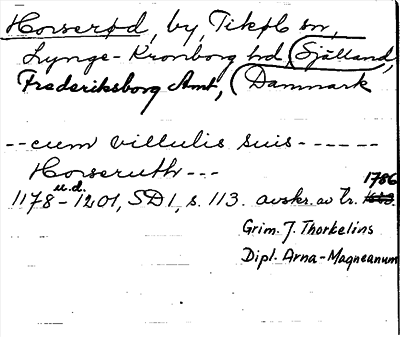 Horserød, by, Tikøb sn,
Lynge-Kronborg hd, (Själland,
Frederiksborg Amt, (Danmark
--cum villulis suis------
Horseruth---
u.d.
1178-1201, SD1, s. 113. avskr. av Tr. 1786
Grim. J. Thorkelins
Dipl. Arna-Magneanum